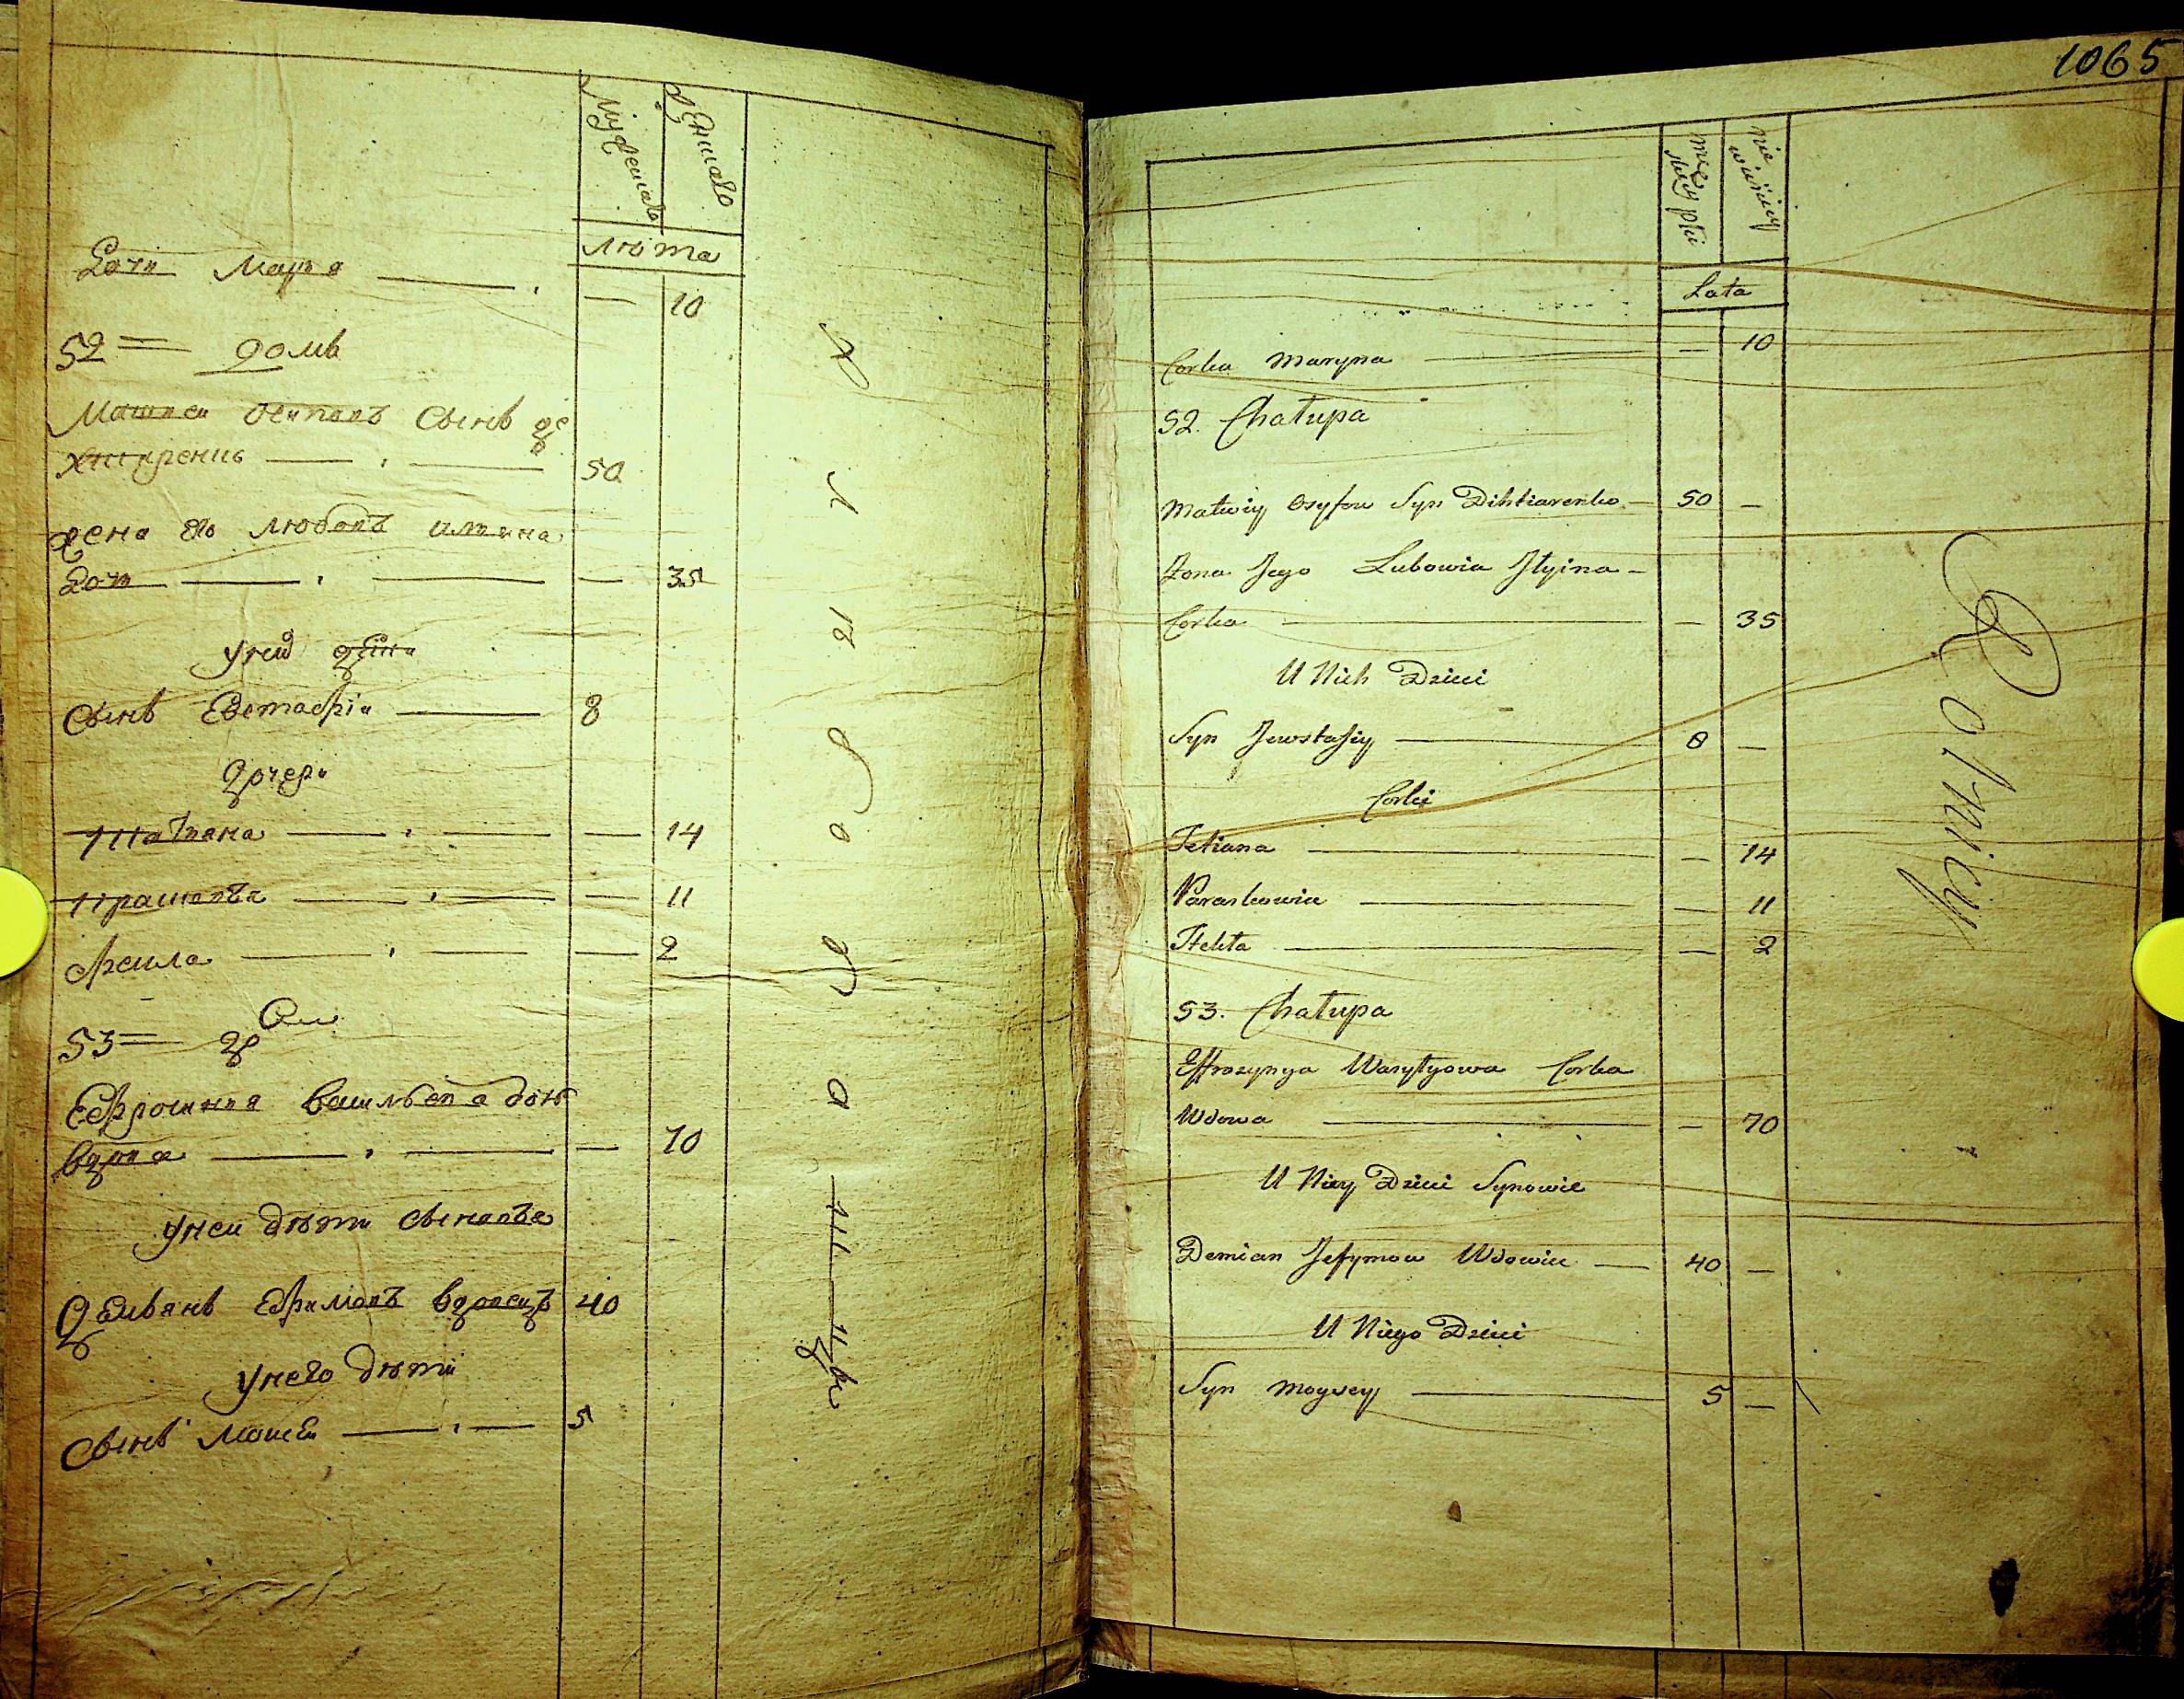 Мужеска
Женска
Лѣта
Дочь Мар‍ія — — 10
52 = домъ
Матвеи Осиповъ Сынъ Де
хтяренко — 50
Жена его Любовъ Илина
Дочь — — 35
У них дѣти
Сынъ Евстафіи — 8
Дочери
Татьяна — — 14
Прасковія — — 11
Фекла — — 2
53 = домъ
Евфросинія Васильева дочь
Вдова — — 70
У неи дѣти Сыновья
Демьянъ Ефимовъ вдовецъ 40
У него дѣти
Сынъ Моисеи — 5
Х л ѣ б о
1065
męzkiey płci
niewieściey
Lata
Corka Maryna — — 10
52. Chałupa
Matwiy Osyfow Syn Dihtiarenko — 50 —
Żona Jego Lubowia Jlyina —
Corka — — 35
U Nich Dzieci
Syn Jewstafiy — 8 —
Corki
Tetiana — — 14
Paraskowia — — 11
Tekla — — 2
53. Chałupa
Effrosynya Wasylyowa Corka
Wdowa — — 70
U Niey Dzieci Synowie
Demian Jefymow Wdowiec — 40 —
U Niego Dzieci
Syn Moysey — 5 —
Rolnicy